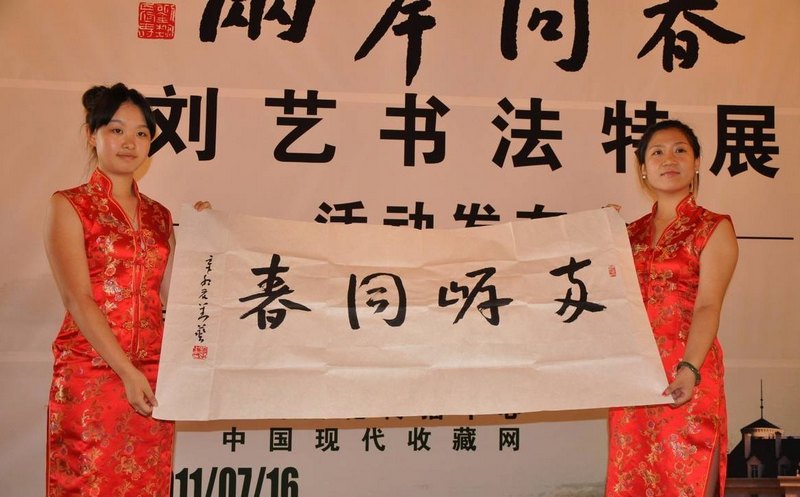 兩岸同春
刘艺书法特展
活动发布
两岸同春
辛卯夏刘藝
中国现代收藏网
011/07/16